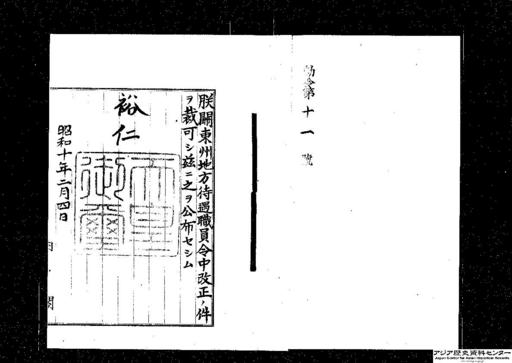 勅令第十一號
朕關東州地方待遇職員令中改正ノ件
ヲ裁可シ茲ニ之ヲ公布セシム
裕仁
天皇御璽
昭和十年二月四日
内閣
アジア歴史資料センター
Japan Center for Asian Historical Records